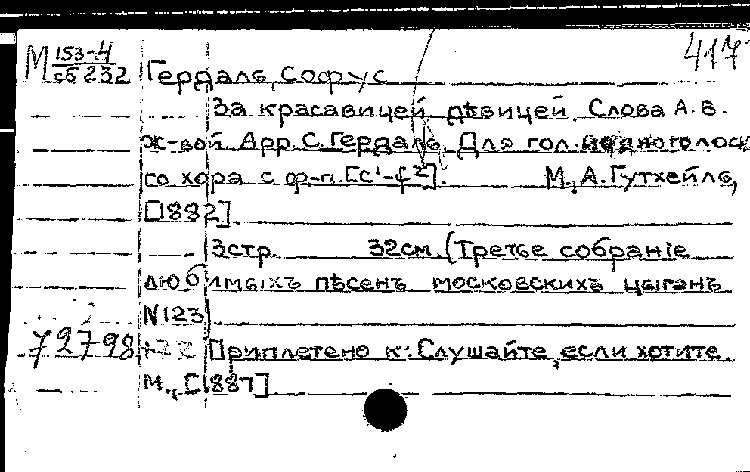 417
М 153-4
сб 232
Гердаль, Софус
За красавицей дѣвицей. Слова А. В.
Ж-вой Арр. С. Гердаль. Для гол. и одноголосн
го хора с ф-п. [c¹-f²]. М., А. Гутхейль,
[1882].
3стр. 32см. (Третье собранiе
любимыхъ пѣсенъ московскихъ цыганъ
N123)
72798 Приплетено к: Слушайте, если хотите
М., [1887]